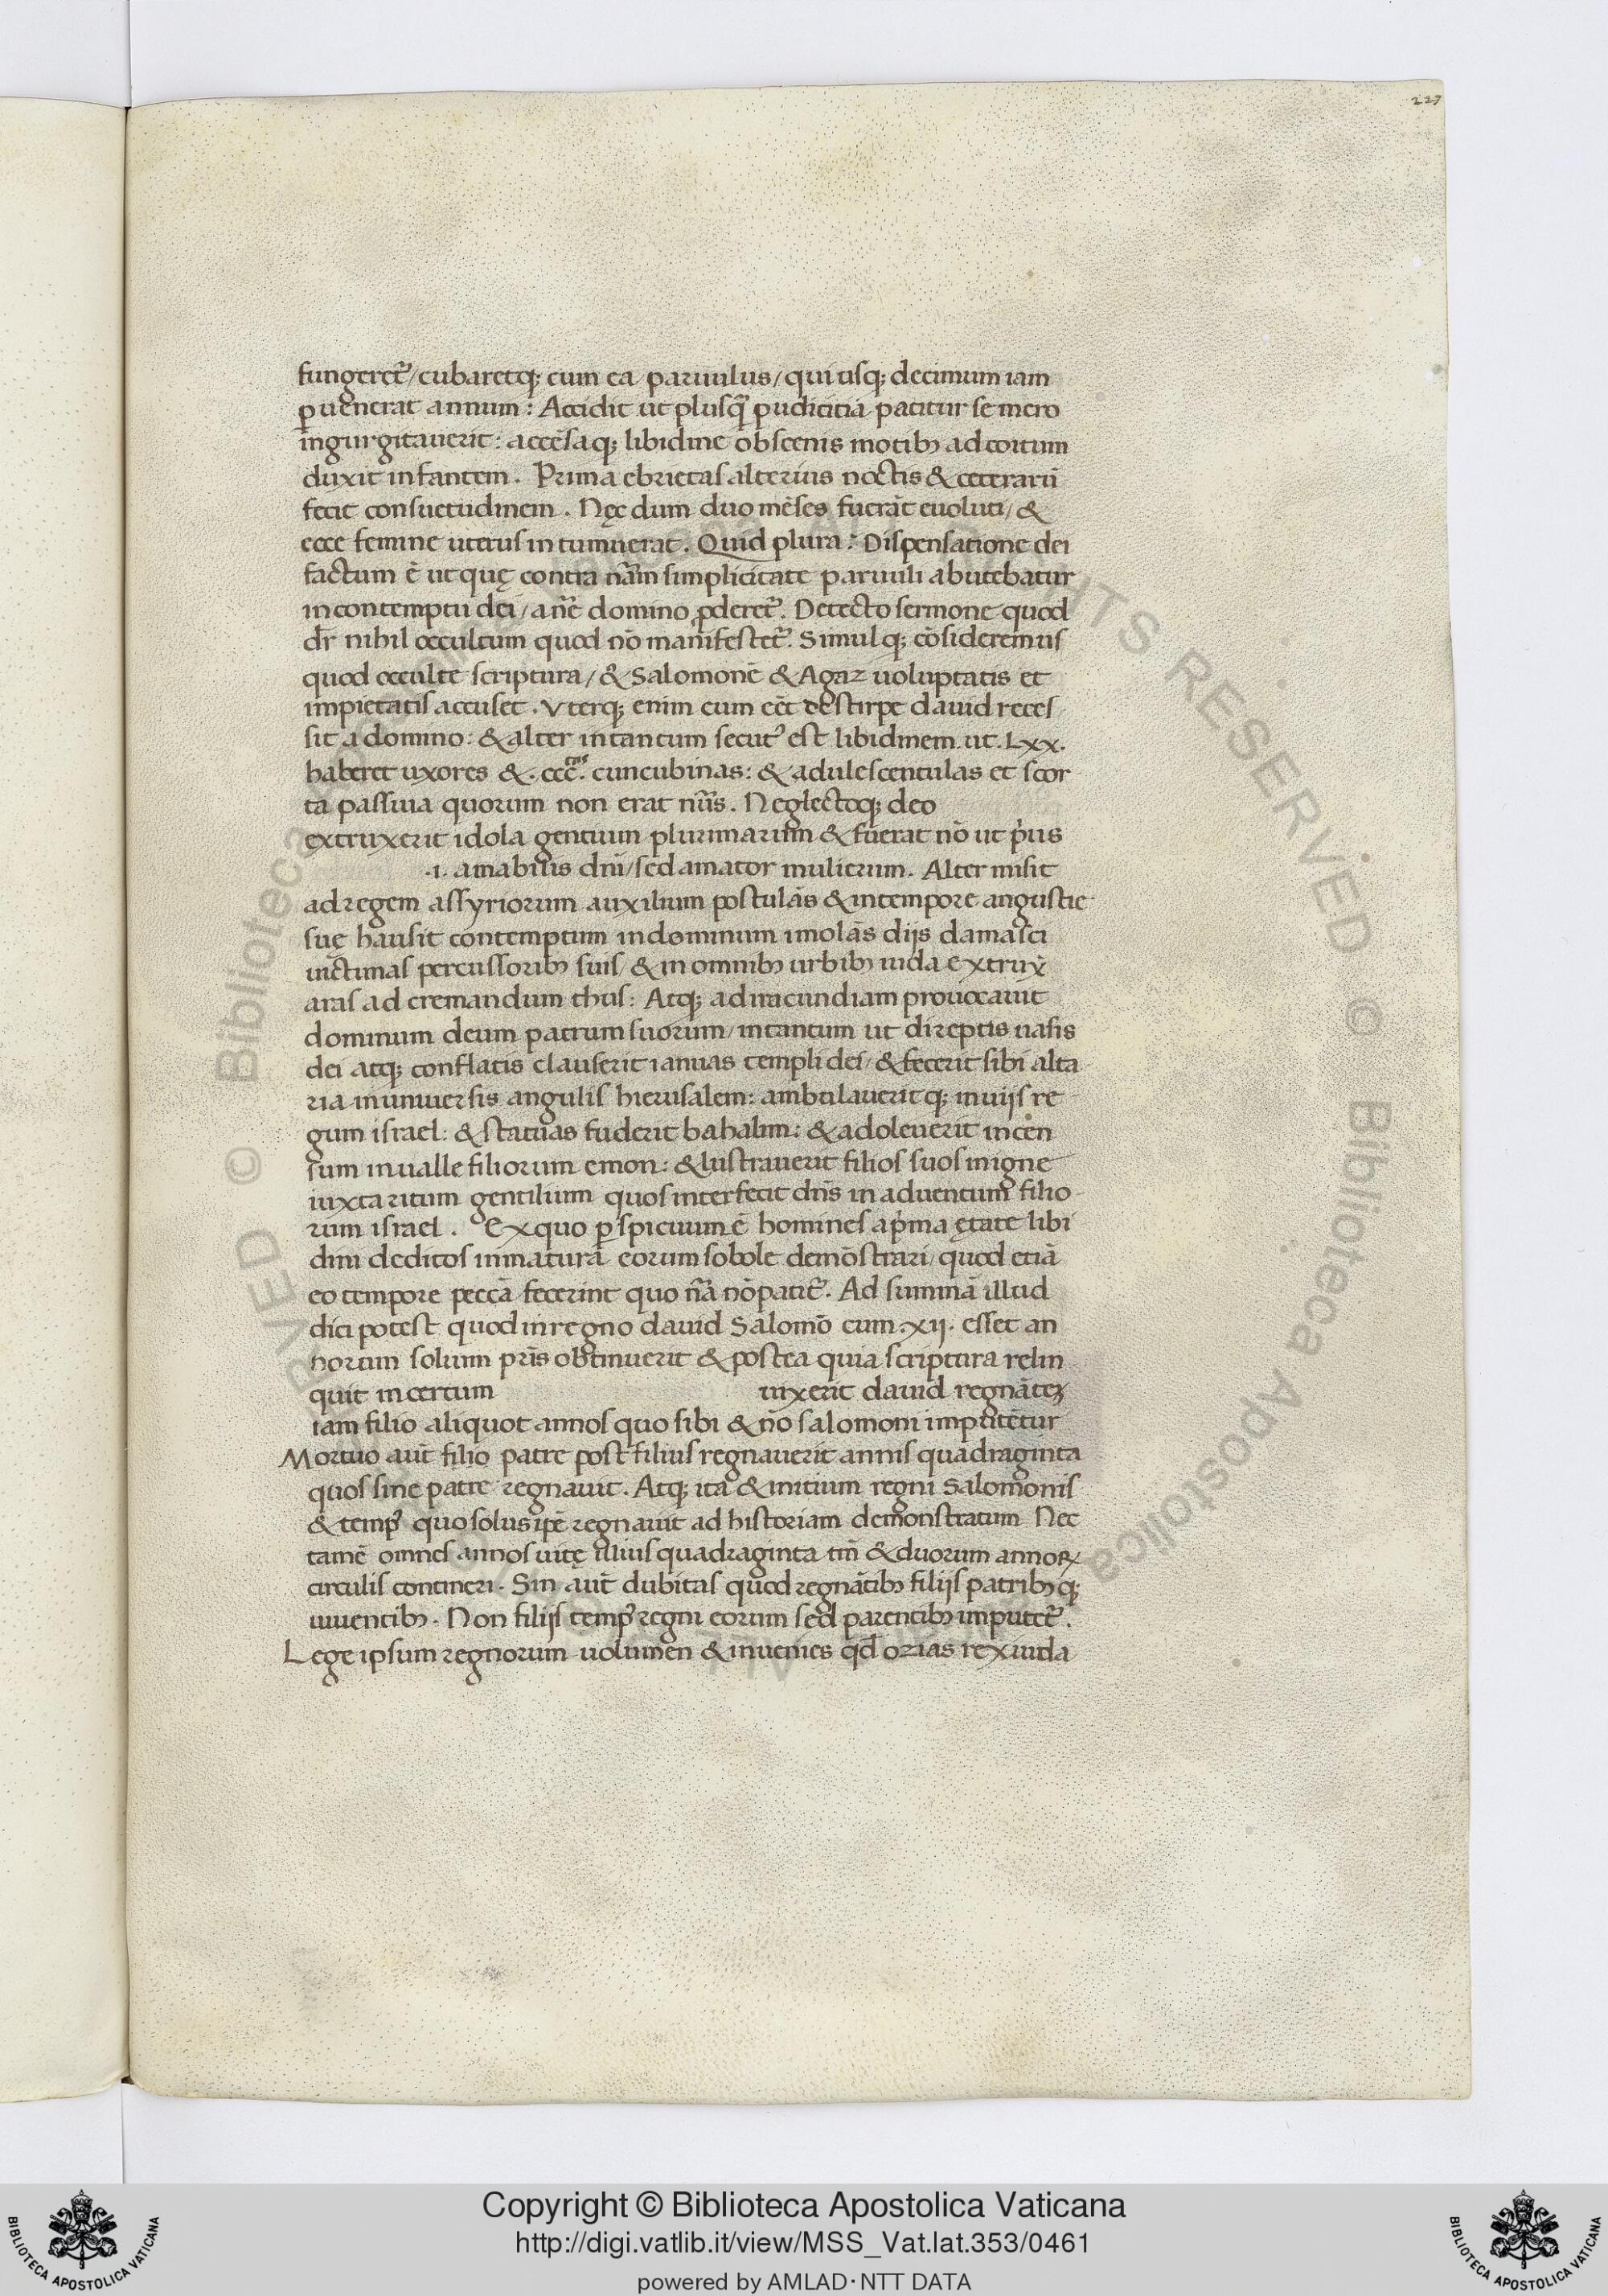 227
fungeret᷑/cubaretq; cum ea paruulus/qui usq; decimum iam
ꝑuenerat annum: Accidit ut plusq̃ pudicicia patitur se mero
ingurgitauerit: accēsaq; libidine obscenis motibꝫ ad coitum
duxit infantem. Prima ebrietas alterius noctis & ceterarū
fecit consuetudinem. Nęc dum duo mēses fuerāt euoluti/&
ecce femine uterus intumuerat. Quid plura: Dispensatione dei
factum ē ut quę contra nãm simplicitate paruuli abutebatur
in contemptu dei/a nr̄e domino ꝓderet᷑. Detecto sermone quod
dr̄ nihil occultum quod nō manifestet᷑. Simul q; cōsideremus
quod occulte scriptura/& Salomonē & Agaz uoluptatis et
impietatis accuset. Vterq; enim cum eēt de stirpe dauid reces
sit a domino: & alter in tantum secut᷒ est libidinem ut. Lxx.
haberet uxores &. ccc.tas cuncubinas: & adulescentulas et scor
ta passiua quorum non erat nūs. Neglectoq; deo
extruxerit idola gentium plurimarum & fuerat nō ut p̓us
.i. amabilis dn̄i/sed amator mulierum. Alter misit
ad regem assyriorum auxilium postulās & in tempore angustie
suę hausit contemptum in dominum imolās diis damasci
uictimas percussoribꝫ suis/& in omnibꝫ urbibꝫ iuda extrux̄
aras ad cremandum thus: Atq; ad iracundiam prouocauit
dominum deum patrum suorum/in tantum ut direptis uasis
dei atq; conflatis clauserit ianuas templi dei/& fecerit sibi alta
ria in uniuersis angulis hierusalem: ambulaueritq; in uijs re
gum israel: & statuas fuderit bahalim: & adoleuerit incen
sum in ualle filiorum emon: & lustrauerit filios suos in igne
iuxta ritum gentilium quos interfecit dn̄s in aduentum filio
rum israel. Ex quo ꝑspicuum ē homines a p̓ma ętate libi
dini deditos inmatura eorum sobole demōstrari/quod etiā
eo tempore peccā fecerint quo nr̃a nō patit᷑. Ad summā illud
dici potest quod in regno dauid Salomō cum .xij. esset an
norum solium pr̄is obtinuerit & postea quia scriptura relin
quit incertum uixerit dauid regnāte
iam filio aliquot annos quo sibi & nō salomoni imputētur
Mortuo aut̄ filio patre post filius regnauerit annis quadraginta
quos sine patre regnauit. Atq; ita & initium regni Salomonis
& temp᷒ quo solus ip̄e regnauit ad historiam demonstratum Nec
tamē omnes annos uitę illius quadraginta tm̄ & duorum annoꝝ
circulis contineri. Sin aut̄ dubitas quod regnātibꝫ filijs patribꝫ q;
uiuentibꝫ. Non filijs temp᷒ regni eorum sed parentibꝫ imputet᷑.
Lege ipsum regnorum uolumen & inuenies qd̄ ozias rex iuda
Copyright © Biblioteca Apostolica Vaticana
http://digi.vatlib.it/view/MSS_Vat.lat.353/0461
powered by AMLAD·NTT DATA